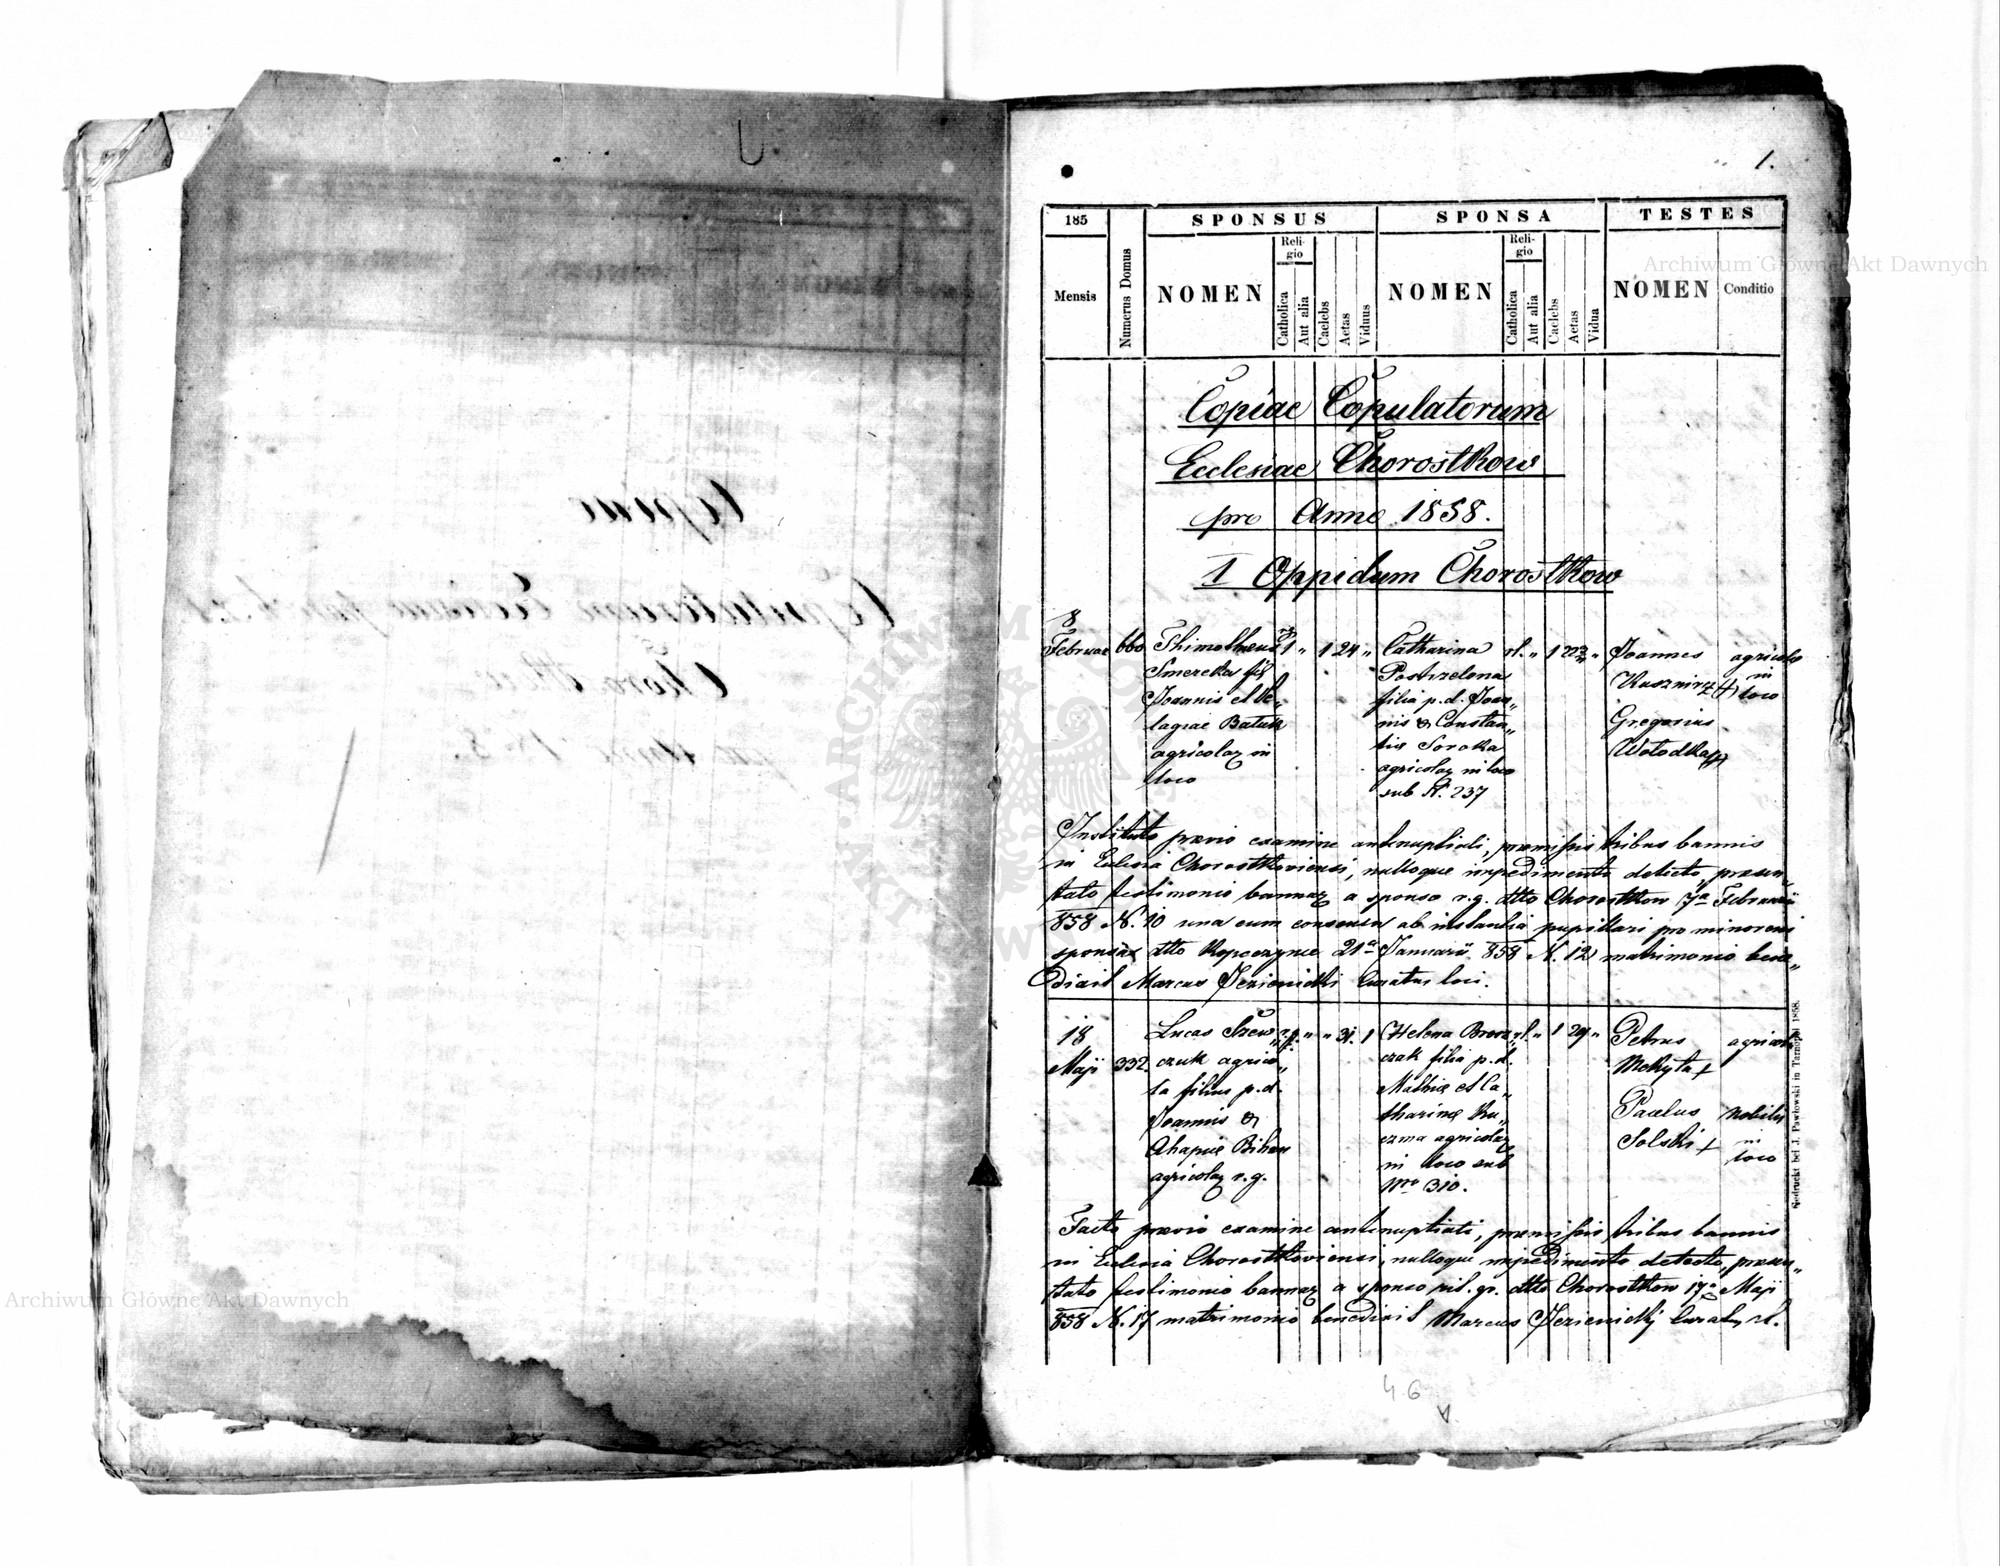 1.
185
Mensis
Numerus Domus
SPONSUS
NOMEN
Religio
Catholica
Aut alia
Caelebs
Aetas
Viduus
SPONSA
NOMEN
Religio
Catholica
Aut alia
Caelebs
Aetas
Vidua
TESTES
NOMEN
Conditio
Copiae Copulatorum
Ecclesiae Chorostkow
pro Anno 1858.
I Oppidum Chorostkow
8
Februar 660
1 „ 1 24 „
Smereka fil
Joannis et Pe„
lagiae Batuk
agricolaz in
loco
Catharina
Postrzelona
filia p. d. Joan„
nis & Constan„
tiae Soroka
agricolaz in loco
sub N. 237
rl. „ 1 „
Joannes
Kusznirz (+)
Gregorius
Wolodka (+)
agricolae
in
loco
praevio examine antenuptiali, praemissis tribus bannis
in Eclesia Chorostkoviensi, nulloque impedimento detecto, praesen„
tato testimonio bannaz a sponso r. g. dtto Chorostkow 7a Februarii
858 N. 10 una cum consensu ab instantia pupillari pro minoreni
sponsae dtto Kopeczynce 21a Januarii 858 N. 12 matrimonio bene„
dixit Marcus Jezienicki Curatus loci.
18
Maji 332
Lucas Szew„
czuk agrico„
la filius p. d.
Joannis &
Ahapiae
agricolaz r. g.
r. g. „ „ 31. 1
Helena
czak filia p. d.
Mathiae et Ca„
tharinae Ku„
czma agricolaz
in loco sub
Nro 310.
rl. „ 1 „
Petrus
Mokyta +
Paulus
Solski +
agricola
nobilis
in
loco
Facto praevio examine antenuptiali, praemissis tribus bannis
in Eclesia Chorostkoviensi, nulloque impedimento detecto, praesen„
tato testimonio bannaz a sponso rit. gr. dtto Chorostkow 17a Maji
858 N. 17 matrimonio benedixit Marcus Jezienicki Curatus rl.
Gedruckt bei J. Pawlowski in Tarnopol 1858.
46
Archiwum Główne Akt Dawnych
Archiwum Główne Akt Dawnych